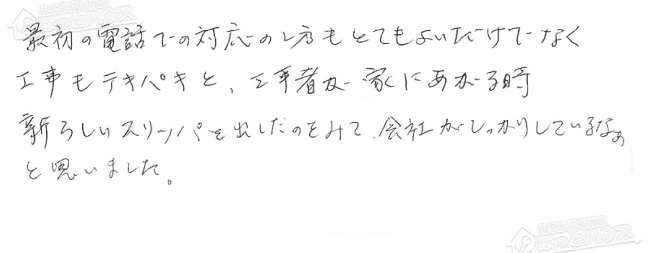 最初の電話での対応の方もとてもよいだけでなく
工事もテキパキと、工事者が家にあがる時
新らしいスリッパを出したのをみて、会社がしっかりしているなぁ
と思いました。